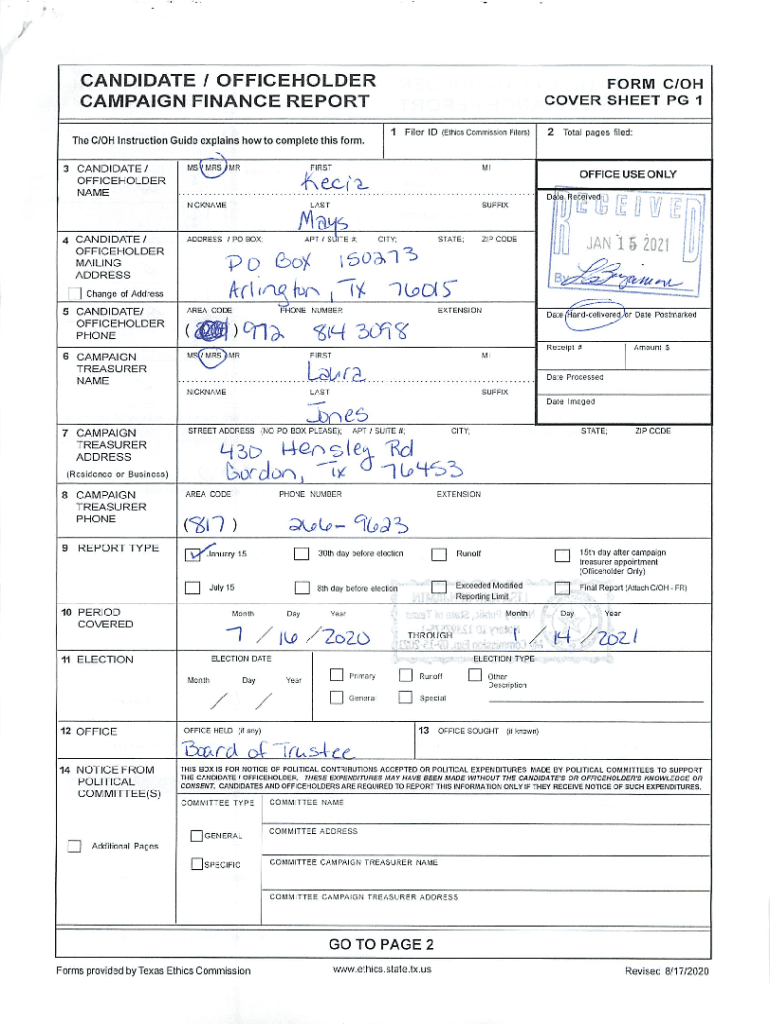 CANDIDATE / OFFICEHOLDER
CAMPAIGN FINANCE REPORT
FORM C/OH
COVER SHEET PG 1
The C/OH Instruction Guide explains how to complete this form.
1 Filer ID (Ethics Commission Filers)
2 Total pages filed:
3 CANDIDATE /
OFFICEHOLDER
NAME
MS / MRS / MR FIRST MI
Kecia
NICKNAME LAST SUFFIX
Mays
OFFICE USE ONLY
Date Received
RECEIVED
JAN 15 2021
By
4 CANDIDATE /
OFFICEHOLDER
MAILING
ADDRESS
Change of Address
ADDRESS / PO BOX; APT / SUITE #; CITY; STATE; ZIP CODE
PO BOX 150273
Arlington, TX 76015
5 CANDIDATE/
OFFICEHOLDER
PHONE
AREA CODE PHONE NUMBER EXTENSION
( ) 972 814 3098
Date Hand-delivered or Date Postmarked
Receipt # Amount $
Date Processed
Date Imaged
6 CAMPAIGN
TREASURER
NAME
MS / MRS / MR FIRST MI
Laura
NICKNAME LAST SUFFIX
Jones
7 CAMPAIGN
TREASURER
ADDRESS
(Residence or Business)
STREET ADDRESS (NO PO BOX PLEASE); APT / SUITE #; CITY; STATE; ZIP CODE
430 Hensley Rd
Gordon, TX 76453
8 CAMPAIGN
TREASURER
PHONE
AREA CODE PHONE NUMBER EXTENSION
(817) 266-9623
9 REPORT TYPE
January 15 30th day before election Runoff 15th day after campaign
treasurer appointment
(Officeholder Only)
July 15 8th day before election Exceeded Modified
Reporting Limit Final Report (Attach C/OH - FR)
10 PERIOD
COVERED
Month Day Year Month Day Year
7 / 16 / 2020 THROUGH 1 / 14 / 2021
11 ELECTION
ELECTION DATE
Month Day Year
/ /
ELECTION TYPE
Primary Runoff Other
Description
General Special
12 OFFICE
OFFICE HELD (if any)
Board of Trustee
13 OFFICE SOUGHT (if known)
14 NOTICE FROM
POLITICAL
COMMITTEE(S)
Additional Pages
THIS BOX IS FOR NOTICE OF POLITICAL CONTRIBUTIONS ACCEPTED OR POLITICAL EXPENDITURES MADE BY POLITICAL COMMITTEES TO SUPPORT
THE CANDIDATE / OFFICEHOLDER. THESE EXPENDITURES MAY HAVE BEEN MADE WITHOUT THE CANDIDATE'S OR OFFICEHOLDER'S KNOWLEDGE OR
CONSENT. CANDIDATES AND OFFICEHOLDERS ARE REQUIRED TO REPORT THIS INFORMATION ONLY IF THEY RECEIVE NOTICE OF SUCH EXPENDITURES.
COMMITTEE TYPE
GENERAL
SPECIFIC
COMMITTEE NAME
COMMITTEE ADDRESS
COMMITTEE CAMPAIGN TREASURER NAME
COMMITTEE CAMPAIGN TREASURER ADDRESS
GO TO PAGE 2
Forms provided by Texas Ethics Commission
www.ethics.state.tx.us
Revised 8/17/2020